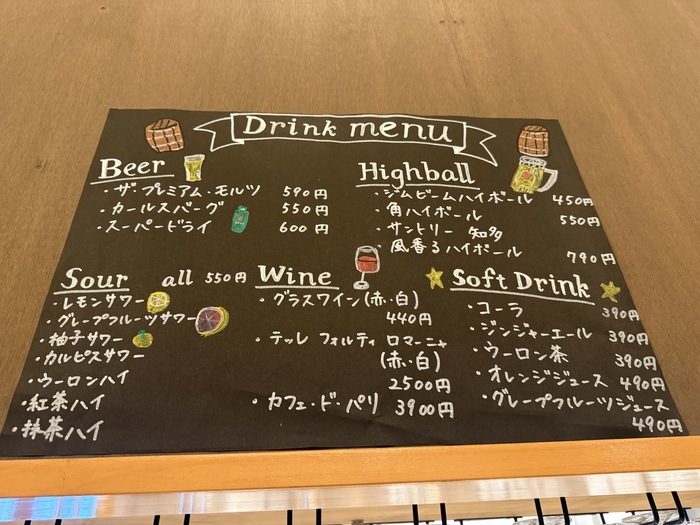 Drink menu
Beer
・ザ・プレミアム・モルツ 590円
・カールスバーグ 550円
・スーパードライ 600円
Highball
・ジムビームハイボール 450円
・角ハイボール 550円
・サントリー 知多
・風香るハイボール 790円
Sour all 550円
・レモンサワー
・グレープフルーツサワー
・柚子サワー
・カルピスサワー
・ウーロンハイ
・紅茶ハイ
・抹茶ハイ
Wine
・グラスワイン(赤・白)
440円
・テッレ フォルティ ロマーニャ
(赤・白)
2500円
・カフェ・ド・パリ 3900円
Soft Drink
・コーラ 390円
・ジンジャーエール 390円
・ウーロン茶 390円
・オレンジジュース 490円
・グレープフルーツジュース
490円